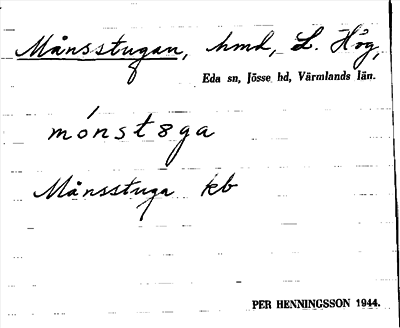 Månsstugan, hmd, L. Hög,
Eda sn, Jösse hd, Värmlands län.
mónst8ga
Månsstuga kb
PER HENNINGSSON 1944.